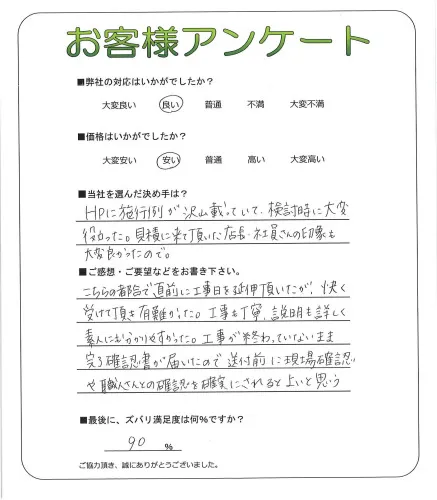 お客様アンケート
■弊社の対応はいかがでしたか?
大変良い 良い 普通 不満 大変不満
■価格はいかがでしたか?
大変安い 安い 普通 高い 大変高い
■当社を選んだ決め手は?
HPに施行例が沢山載っていて、検討時に大変
役立った。見積に来て頂いた店長・社員さんの印象も
大変良かったので。
■ご感想・ご要望などをお書き下さい。
こちらの都合で直前に工事日を延伸頂いたが、快く
受けて頂き有難かった。工事も丁寧、説明も詳しく
素人にもわかりやすかった。工事が終わっていないまま
完了確認書が届いたので送付前に現場確認
や職人さんとの確認を確実にされると良いと思う
■最後に、ズバリ満足度は何%ですか?
90 %
ご協力頂き、誠にありがとうございました。